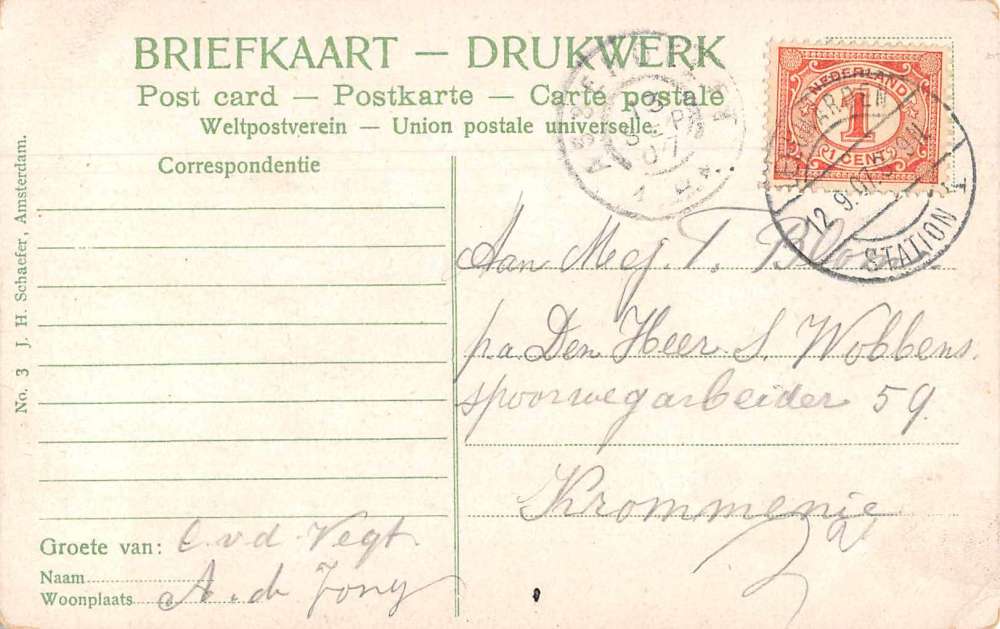 BRIEFKAART — DRUKWERK
Post card — Postkarte — Carte postale
Weltpostverein — Union postale universelle.
Correspondentie
NEDERLAND
1
1 CENT
12.9.07
STATION
07
No. 3 J. H. Schaefer, Amsterdam.
Aan Mej. T.
p/a Den Heer S. Wobbens.
spoorwegarbeider 59.
Krommenie
Groete van: C. v d. Vegt.
Naam
Woonplaats A. de Jong